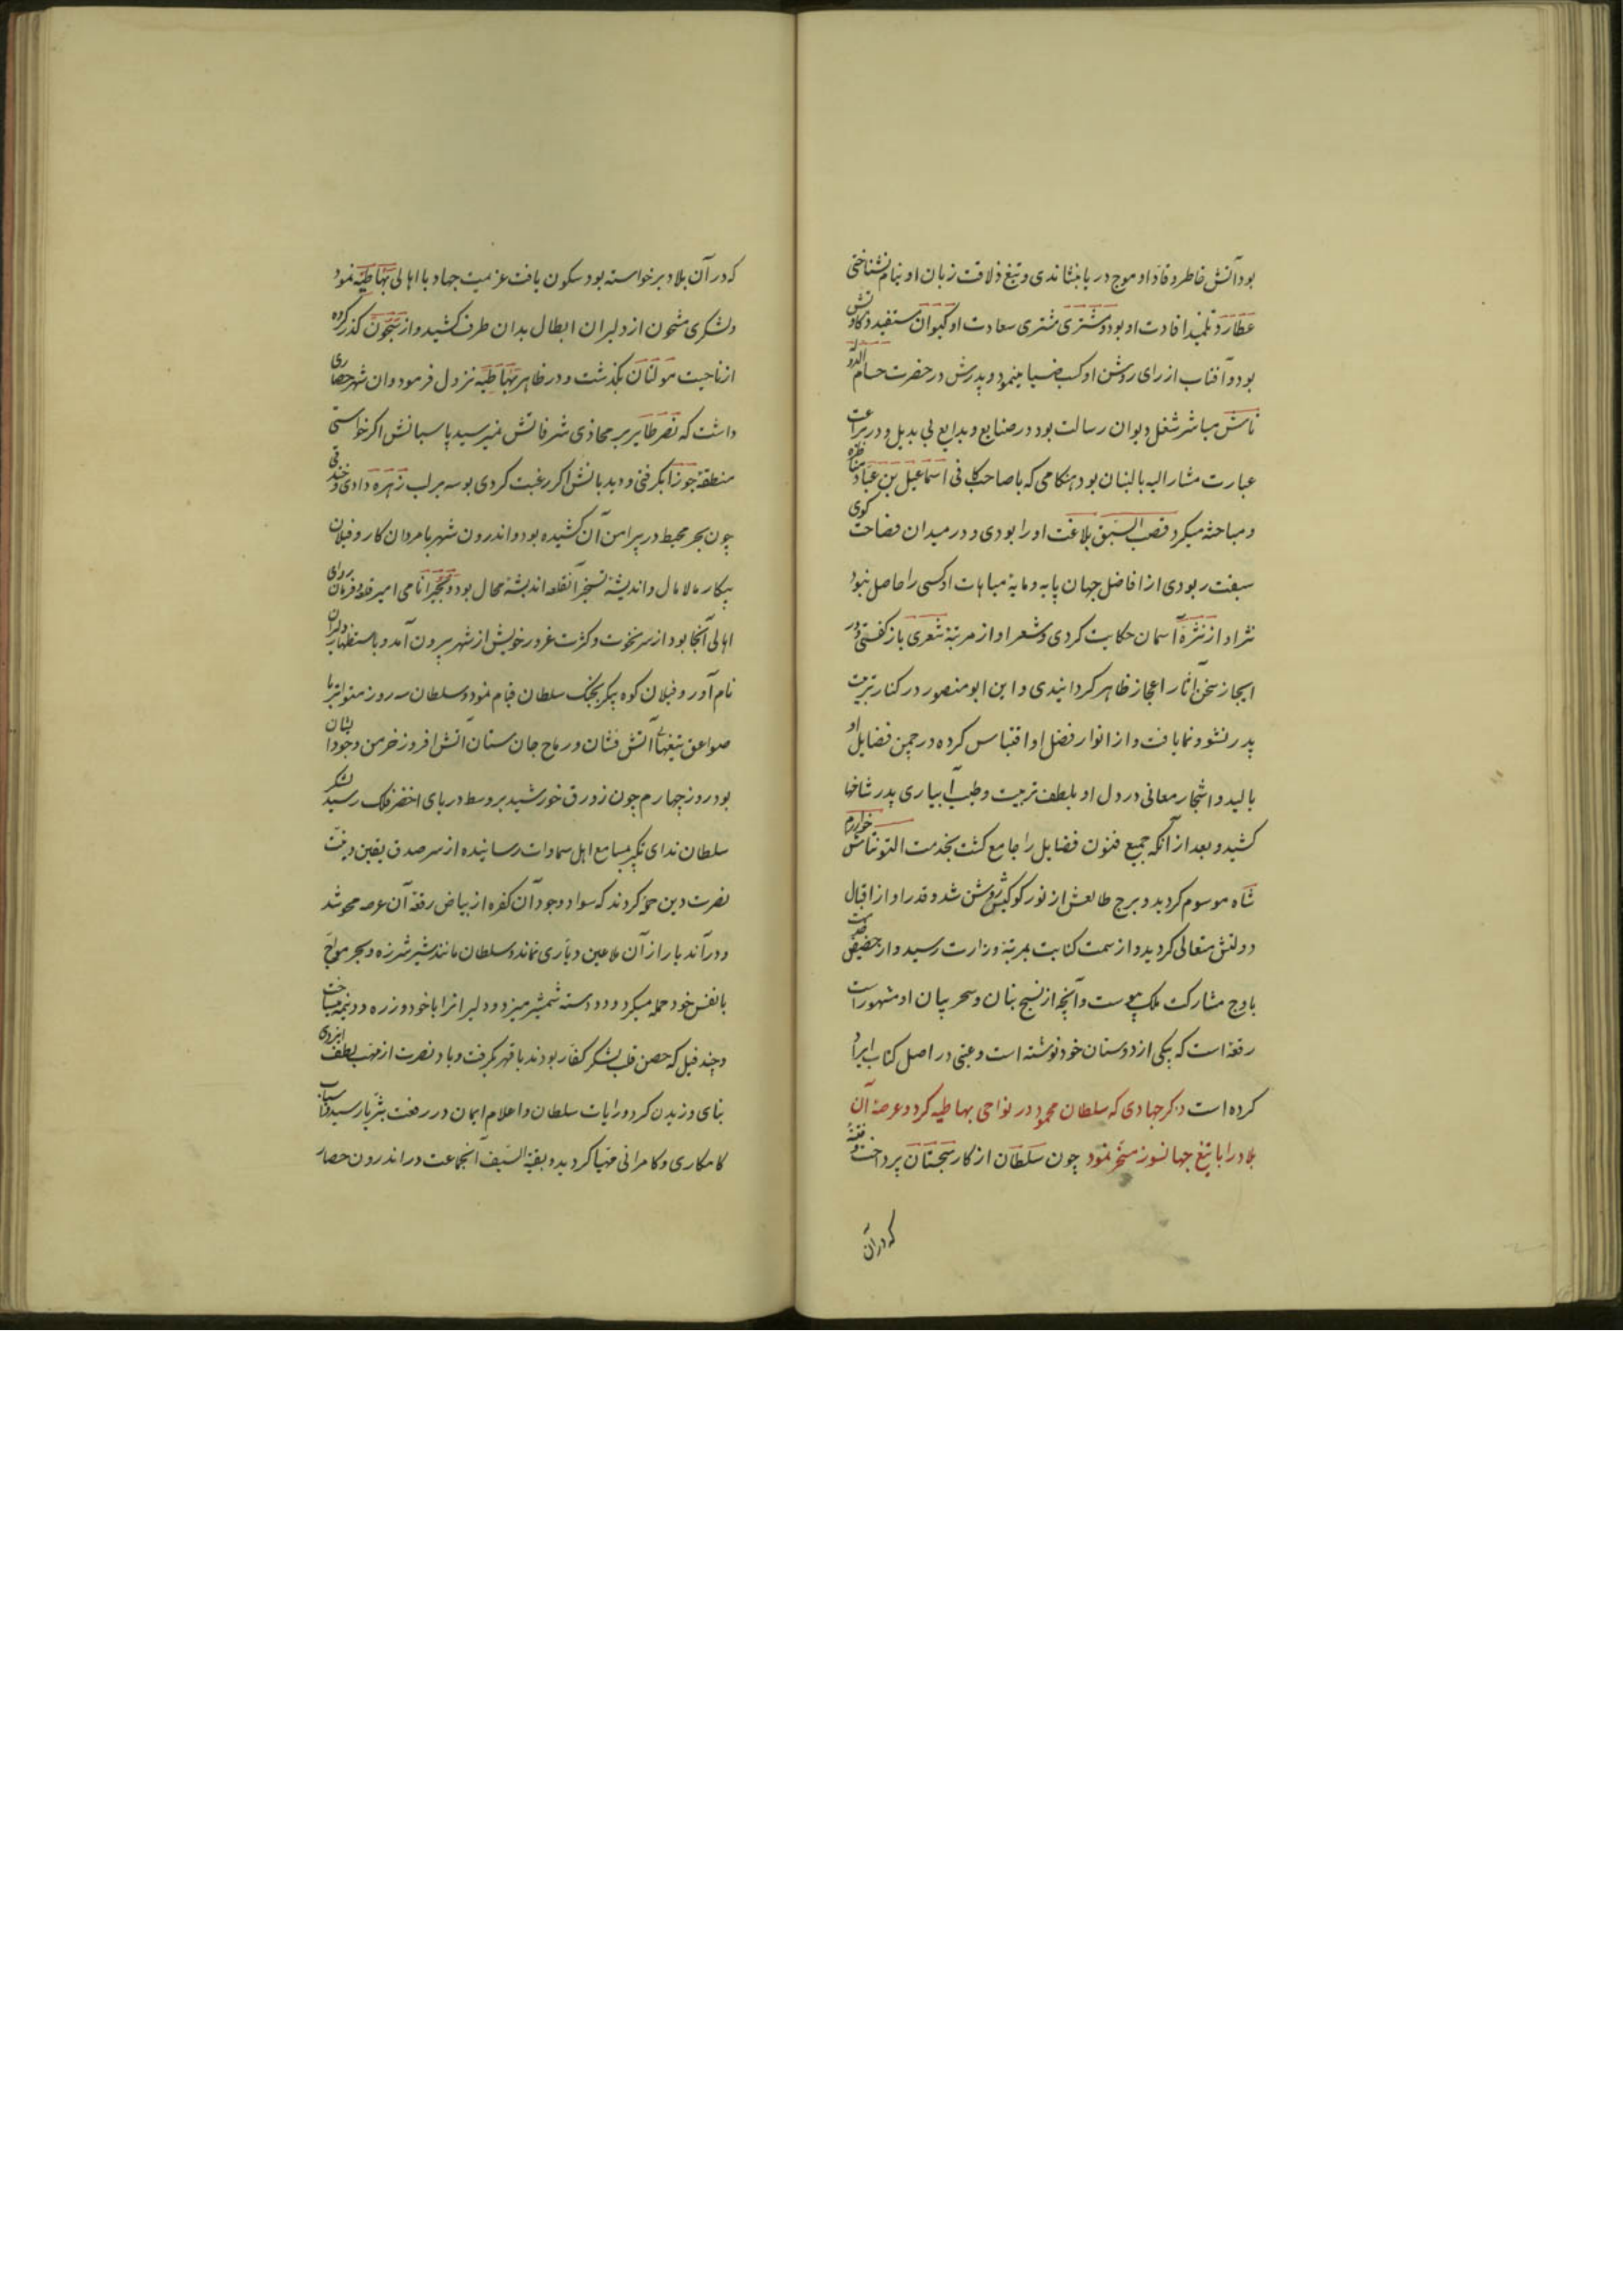 بود آتش خاطر وقاد او موج دریا بنشاندی و تیغ ذلاقت زبان او نیام نشناختی
عطارد تلمیذ افادت او بود و مشتری مشتری سعادت او کیوان مستفید ذکاوتش
بود و آفتاب از رای روشن او کسب ضیا مینمود و پدرش در حضرت حسام الدوله
تاش مباشر شغل دیوان رسالت بود در صنایع و بدایع بی بدیل و در براعت
عبارت مشار الیه بالبنان بود هنکامی که با صاحب کافی اسماعیل بن عباد مناظره
و مباحثه میکرد قصب السبق بلاغت او را بودی و در میدان فصاحت کوی
سبقت ربودی از افاضل جهان پایه و مایه مباهات او کسی را حاصل نبود
نثر او از نثره آسمان حکایت کردی و شعر او از مرتبه شعری باز کفتی و در
ایجاز سخن آثار اعجاز ظاهر کردانیدی و ابن ابو منصور در کنار تربیت
پدر نشو و نما یافت و از انوار فضل او اقتباس کرده در چمن فضایل او
بالید و اشجار معانی در دل او بلطف تربیت و طیب آبیاری پدر شاخها
کشید و بعد از آنکه جمیع فنون فضایل را جامع کشت بخدمت التونتاش خوارزم
شاه موسوم کردید و برج طالعش از نور کوکبش روشن شد و قدر او از اقبال
دولتش متعالی کردید و از سمت کتابت بمرتبه وزارت رسید و از حضیض
باوج مشارکت ملک پیوست و آنچه از نسج بنان و سحر بیان او مشهور است
رقعه است که بیکی از دوستان خود نوشته است و عتبی در اصل کتاب ایراد
کرده است ذکر جهادی که سلطان محمود در نواحی بهاطیه کرد و عرصه آن
بلاد را با تیغ جهانسوز مسخر نمود چون سلطان از کار سجستان پرداخت و فتنه
که در آن
که در آن بلاد برخواسته بود سکون یافت عزیمت جهاد با اهالی بهاطیه نمود
و لشکری مشحون از دلیران ابطال بدان طرف کشید و از سیحون کذر کرده
از ناحیت مولتان بکذشت و در ظاهر بهاطیه نزول فرمود و ان شهر حصاری
داشت که نصر طایر بر محاذی شرفاتش نمیرسید پاسبانش اکر خواستی
منطقه جوزا بکرفتی و دیدبانش اکر رغبت کردی بوسه بر لب زهره دادی و خندقی
چون بحر محیط در پیرامن آن کشیده بود و اندرون شهر با مردان کار و فیلان
پیکار مالامال و اندیشه تسخیر آنقلعه اندیشه محال بود و بجیرا نامی امیر قلعه و فرمان روای
اهالی آنجا بود از سر نخوت و کثرت غرور خویش از شهر بیرون آمد و باستظهار دلیران
نام آور و فیلان کوه پیکر بجنک سلطان قیام نمود و سلطان سه روز متواتر با
صواعق تیغهای آتش فشان و رماح جان ستان آتش افروز خرمن وجود ایشان
بود روز چهارم چون زورق خورشید بر وسط دریای اخضر فلک رسید لشکر
سلطان ندای تکبیر بمسامع اهل سماوات رسانیده از سر صدق یقین و نیت
نصرت دین حمله کردند که سواد وجود آن کفره از بیاض رقعه آن عرصه محو شد
و در آندیار از آن ملاعین دیاری نماند و سلطان مانند شیر شرزه و بحر مواج
بانفس خود حمله میکرد و دو دسته شمشیر میزد و دلیرانرا با خود و زره دو نیمه میساخت
و چند فیل که حصن قلب لشکر کفار بودند با قهر بکرفت و باد نصرت از مهب لطف ایزدی
بنای وزیدن کرد و رایات سلطان و اعلام ایمان در رفعت بثریا رسید و اسباب
کامکاری و کامرانی مهیا کردید و بقیة السیف آنجماعت در اندرون حصار